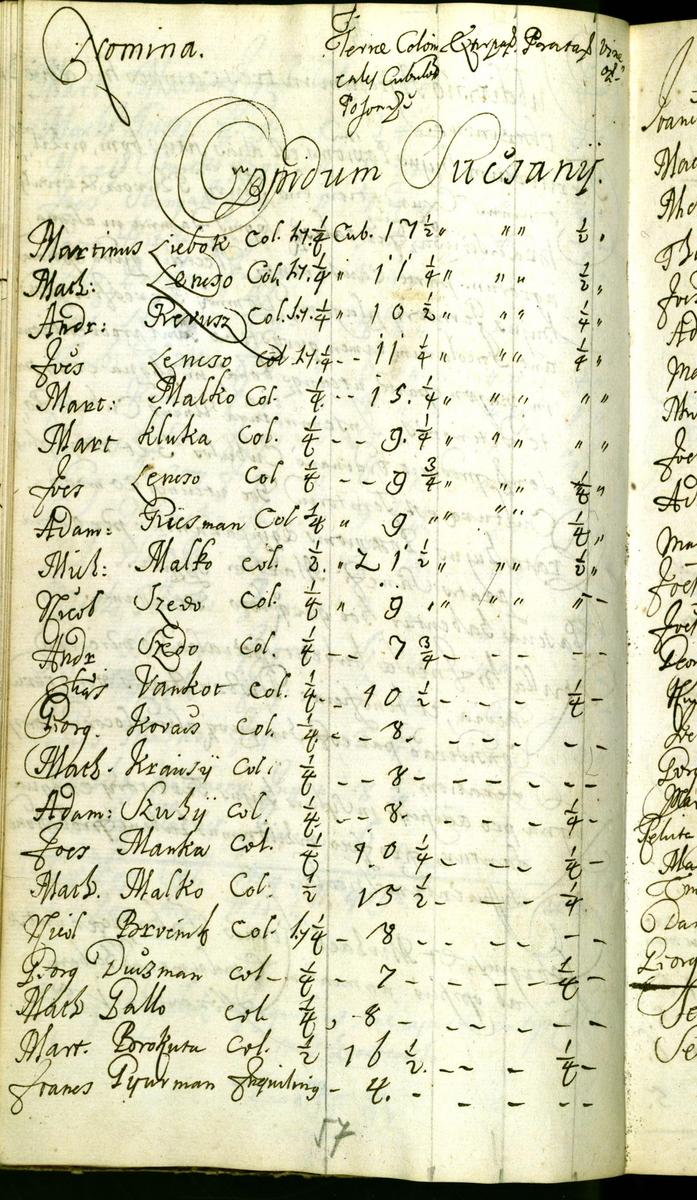 Nomina. Terræ Colon Extirpat. Pratat
cales Cubulos
Posony
Oppidum Sucsany.
Martinus Liebok Col. 1. 1/4 Cub. 17 1/2 " " " 1/2 "
Math: Lencso Col. 1. 1/4 " 11 1/4 " " " 1/2 "
Andr: Revusz Col. 1. 1/4 " 10 1/2 " " " 1/4 "
Joes Lencso Col. 1. 1/4 - - 11 1/4 " " " 1/4 "
Mart: Malko Col. 1/4 - - 15. 1/4 " " " " "
Mart Kluka Col. 1/4 - - 9. 1/4 " " " " "
Joes Lencso Col 1/4 - - 9 3/4 " " " 1/4 "
Adam: Riesman Col 1/4 " 9 " " " " 1/4 "
Mich: Malko Col. 1/2. " 21 1/2 " " " 1/2 "
Nicol Szedo Col. 1/4 " 9 " " " " " -
Andr Szedo Col. 1/4 - - 7 3/4 - - - - -
Elias Vankot Col. 1/4 - 10 1/2 - - - 1/4 -
Georg. Kovacs Col. 1/4 - - 8. - - - - -
Math. Krausy Col: 1/4 - - 8 - - - - - -
Adam: Szuhy Col. 1/4 - - 8. - - - 1/4 -
Joes Manka Col. 1/4 10 1/4 - - - 1/4 -
Math. Malko Col. 1/2 15 1/2 - - - 1/4
Nicol Col. 1. 1/4 - 8 - - - - -
Georg Duczman Col - 1/4 - 7 - - - 1/4 -
Math Gallo Col 1/4 , 8 - - - - - -
Mart. Borokuta Col. 1/2 16 1/2. - - - 1/4 -
Joanes Pyurman Inquilinq - 4. - - - - -
57